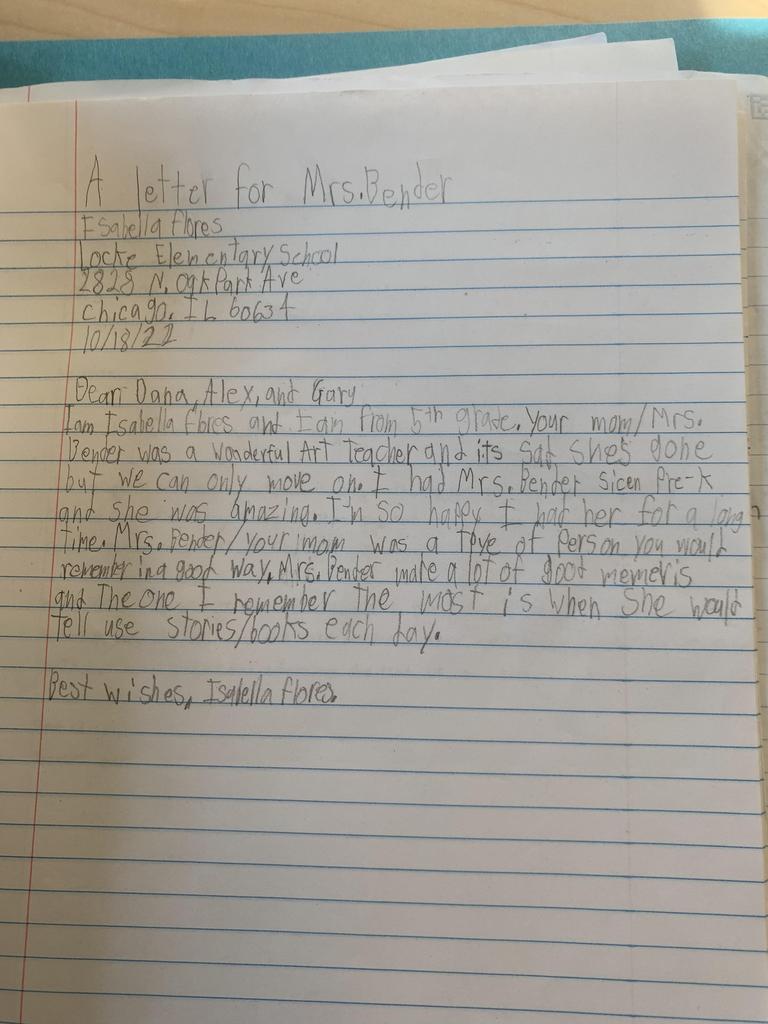 A letter for Mrs.Bender
Isabella flores
Locke Elementary School
2828 N. Oak Park Ave
Chicago, IL 60634
10/18/22
Dear Dana, Alex, and Gary
I am Isabella flores and I am from 5th grade. Your mom/Mrs.
Bender was a wonderful Art Teacher and its sad shes gone
but we can only move on. I had Mrs. Bender sicen Pre-K
and she was amazing. I'm so happy I had her for a long
time. Mrs. Bender/your mom was a Tpye of Person you would
remember in a good way. Mrs. Bender make a lot of good memeris
and The one I remember The most is when she would
Tell use stories/books each day.
Best wishes, Isabella flores.